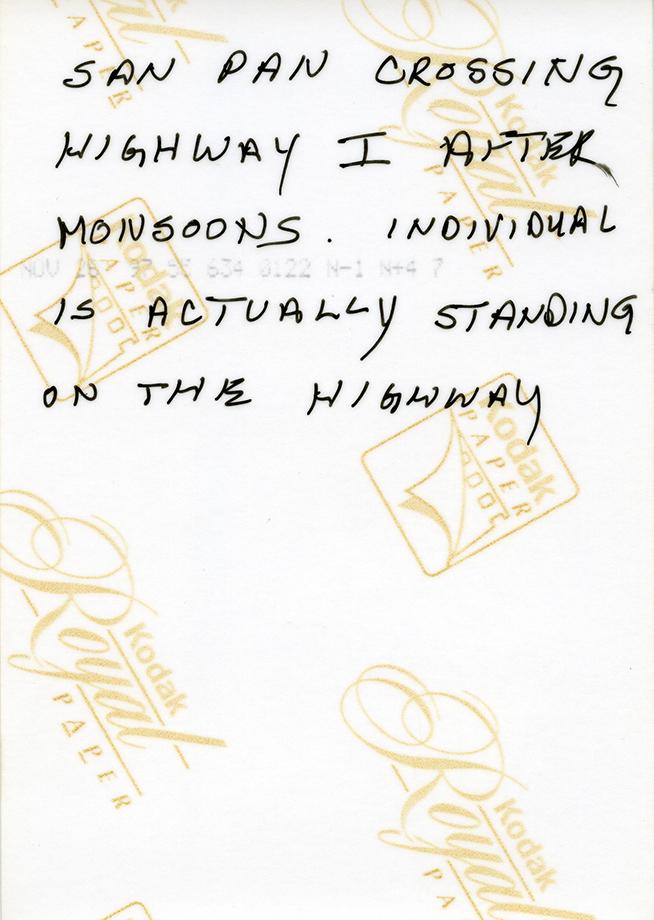 SAN PAN CROSSING
HIGHWAY I AFTER
MONSOONS. INDIVIDUAL
NOV 26 97 55 634 0122 N-1 N+4 7
IS ACTUALLY STANDING
ON THE HIGHWAY
Kodak
Royal
PAPER
Kodak
PAPER
Kodak
PAPER
Kodak
Royal
PAPER
Kodak
Royal
PA